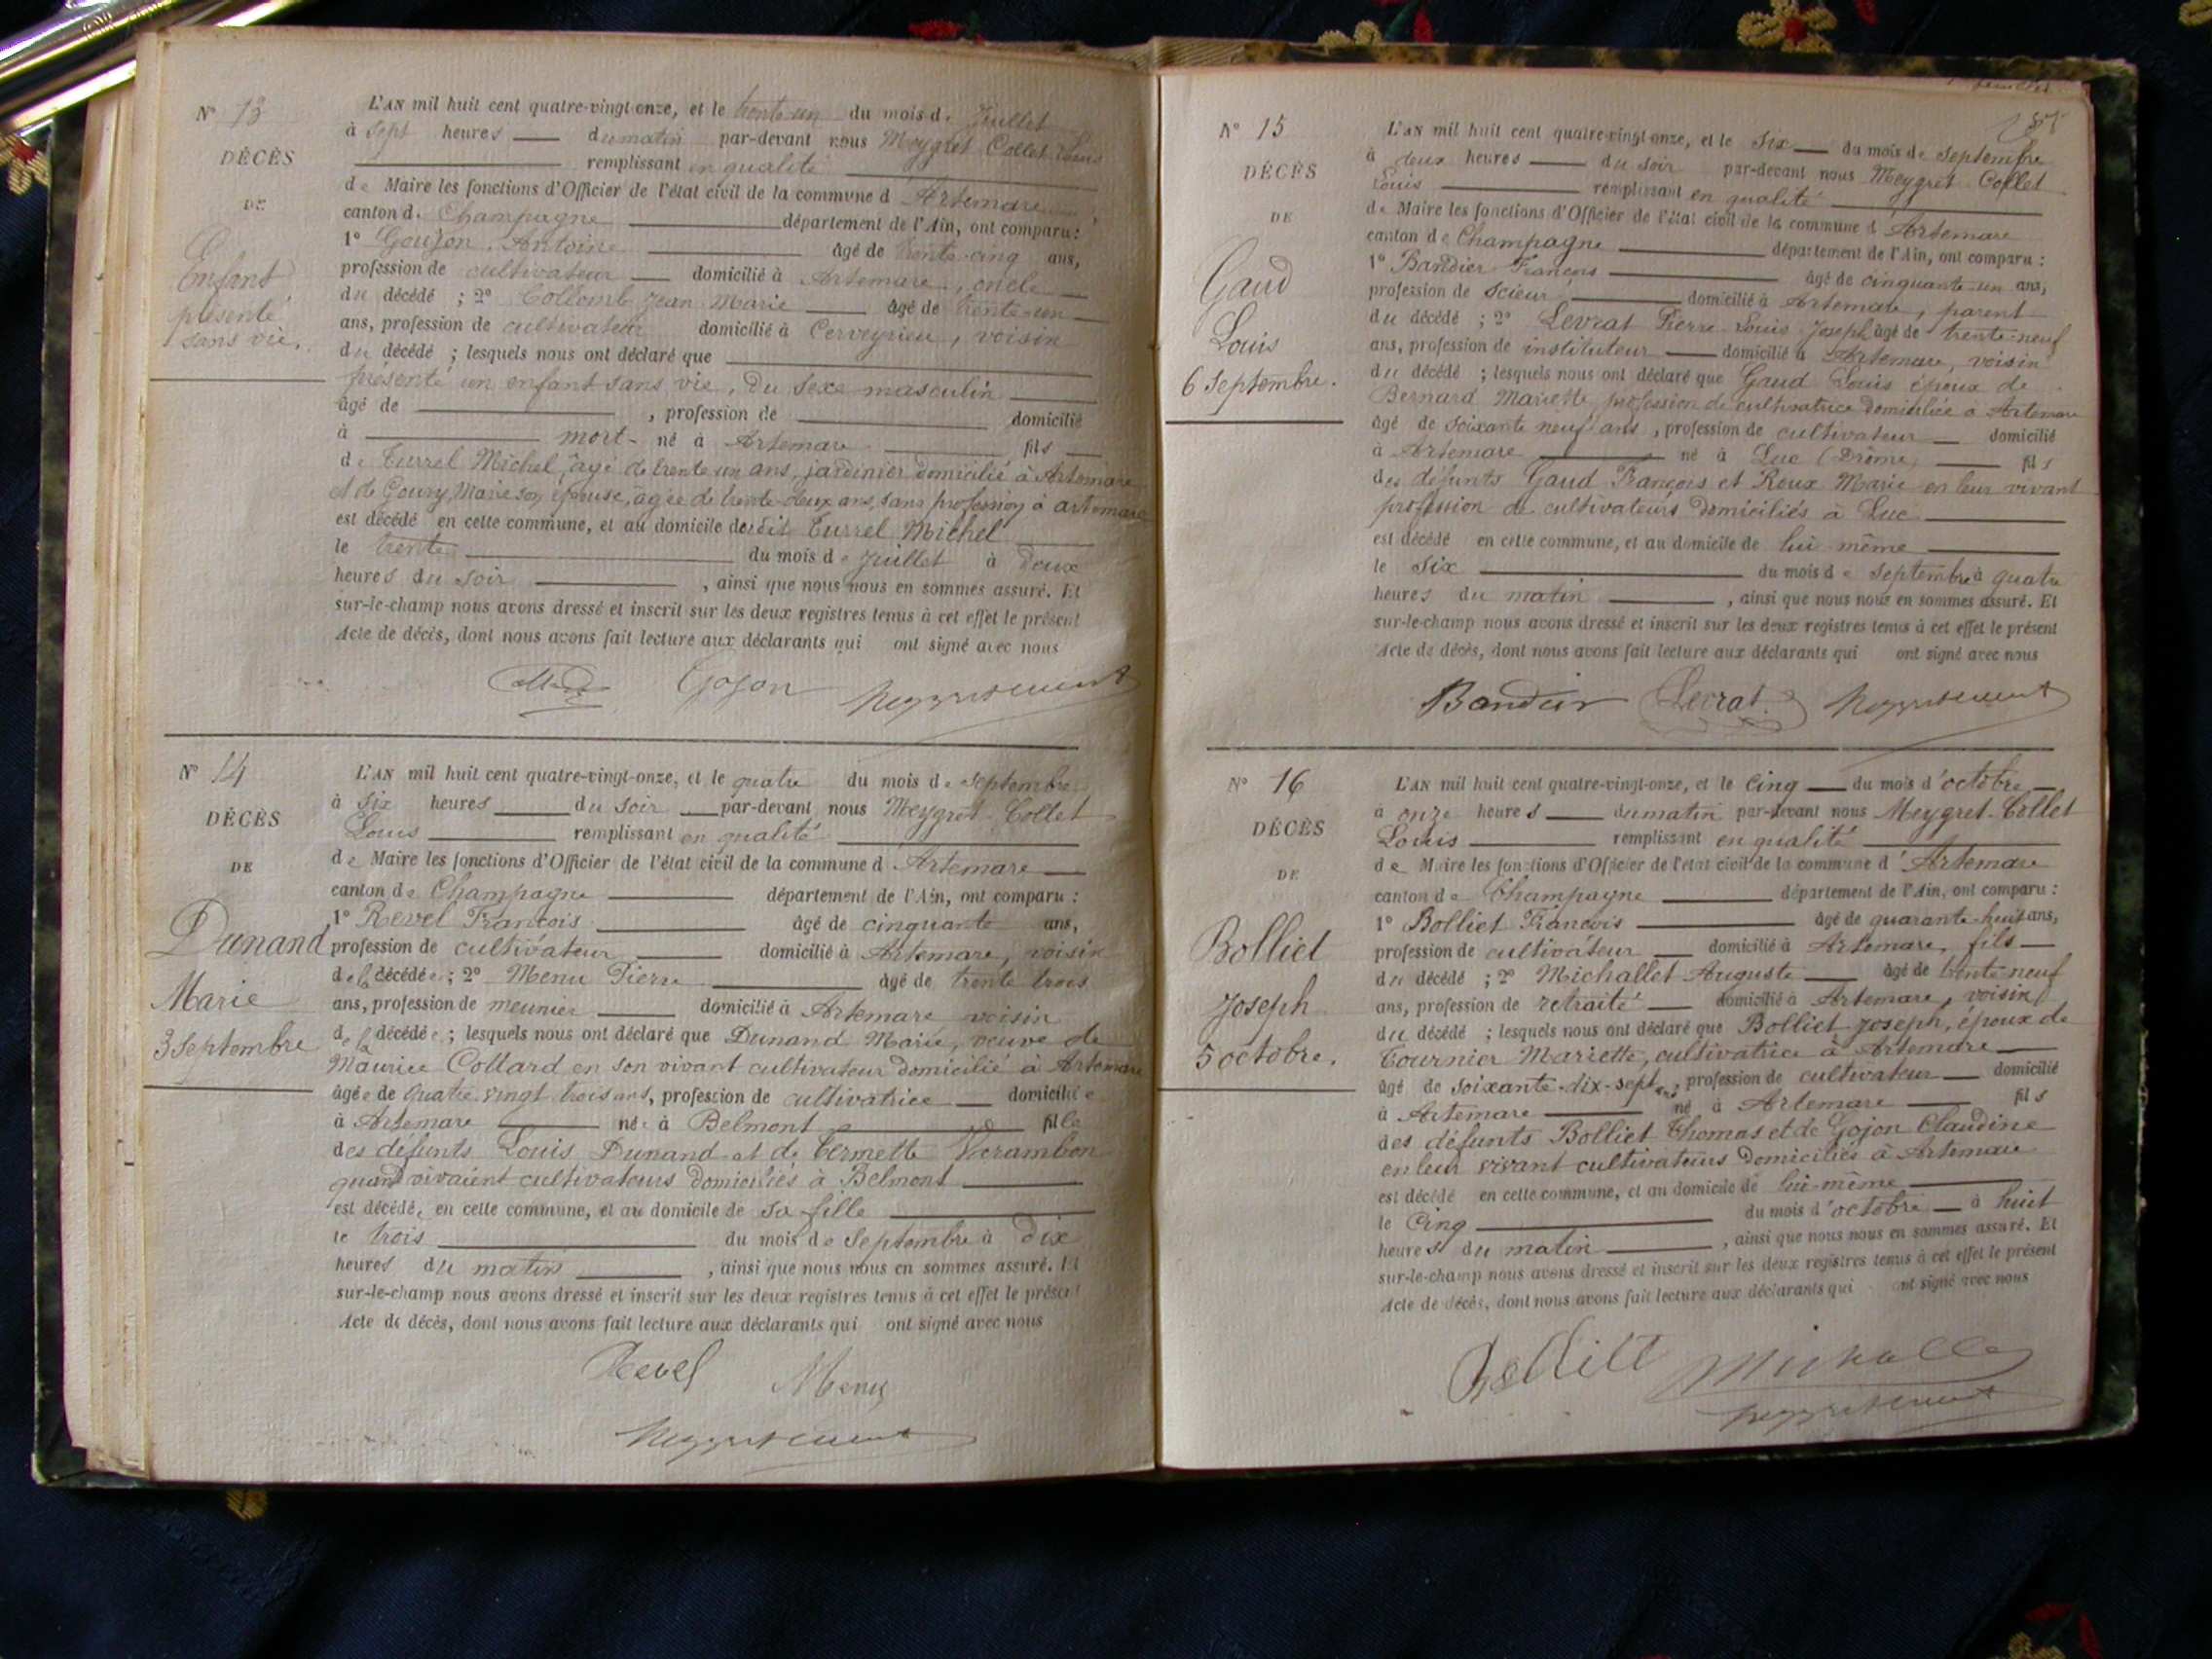 N° 13
DÉCÈS
DE
Enfant
présenté
sans vie.
L'AN mil huit cent quatre-vingt-onze, et le trente un du mois de Juillet
à sept heures du matin par-devant nous Meygret Collet Louis
remplissant en qualité
de Maire les fonctions d'Officier de l'état civil de la commune d Artemare
canton de Champagne département de l'Ain, ont comparu :
1° Goujon Antoine âgé de trente cinq ans,
profession de cultivateur domicilié à Artemare, oncle
du décédé ; 2° Collomb Jean Marie âgé de trente-un
ans, profession de cultivateur domicilié à Cerveyrieu, voisin
du décédé ; lesquels nous ont déclaré que
présenté un enfant sans vie, du sexe masculin
âgé de , profession de domicilié
à mort-né à Artemare fils
de Turrel Michel, âgé de trente un ans, jardinier domicilié à Artemare
et de Goury Marie son épouse, âgée de trente-deux ans, sans profession à artemare
est décédé en cette commune, et au domicile du dit Turrel Michel
le trente du mois de Juillet à deux
heures du soir , ainsi que nous nous en sommes assuré. Et
sur-le-champ nous avons dressé et inscrit sur les deux registres tenus à cet effet le présent
Acte de décès, dont nous avons fait lecture aux déclarants qui ont signé avec nous
Gojon
N° 14
DÉCÈS
DE
Dunand
Marie
3 Septembre
L'AN mil huit cent quatre-vingt-onze, et le quatre du mois de Septembre
à six heures du soir par-devant nous Meygret-Collet
Louis remplissant en qualité
de Maire les fonctions d'Officier de l'état civil de la commune d Artemare
canton de Champagne département de l'Ain, ont comparu :
1° Revel François âgé de cinquante ans,
profession de cultivateur domicilié à Artemare, voisin
de la décédée ; 2° Menu Pierre âgé de trente trois
ans, profession de meunier domicilié à Artemare voisin
de la décédée ; lesquels nous ont déclaré que Dunand Marie, veuve de
Maurice Collard en son vivant cultivateur domicilié à Artemare
âgée de quatre vingt trois ans, profession de cultivatrice domiciliée
à Artemare née à Belmont fille
des défunts Louis Dunand et de Termette Verambon
quand vivaient cultivateurs domiciliés à Belmont
est décédée en cette commune, et au domicile de sa fille
le trois du mois de Septembre à dix
heures du matin , ainsi que nous nous en sommes assuré. Et
sur-le-champ nous avons dressé et inscrit sur les deux registres tenus à cet effet le présent
Acte de décès, dont nous avons fait lecture aux déclarants qui ont signé avec nous
Revel Menu
N° 15
DÉCÈS
DE
Gaud
Louis
6 Septembre.
L'AN mil huit cent quatre-vingt-onze, et le six du mois de Septembre
à deux heures du soir par-devant nous Meygret-Collet
Louis remplissant en qualité
de Maire les fonctions d'Officier de l'état civil de la commune d Artemare
canton de Champagne département de l'Ain, ont comparu :
1° Bandier François âgé de cinquante-un ans,
profession de scieur domicilié à Artemare, parent
du décédé ; 2° Levrat Pierre Louis Joseph âgé de trente-neuf
ans, profession de instituteur domicilié à Artemare, voisin
du décédé ; lesquels nous ont déclaré que Gaud Louis époux de
Bernard Mariette profession de cultivatrice domiciliée à Artemare
âgé de soixante neuf ans, profession de cultivateur domicilié
à Artemare né à Luc (Drôme) fils
des défunts Gaud François et Roux Marie en leur vivant
profession de cultivateurs domiciliés à Luc
est décédé en cette commune, et au domicile de lui-même
le six du mois de Septembre à quatre
heures du matin , ainsi que nous nous en sommes assuré. Et
sur-le-champ nous avons dressé et inscrit sur les deux registres tenus à cet effet le présent
Acte de décès, dont nous avons fait lecture aux déclarants qui ont signé avec nous
Bandier Levrat
N° 16
DÉCÈS
DE
Bolliet
Joseph
5 octobre.
L'AN mil huit cent quatre-vingt-onze, et le cinq du mois d'octobre
à onze heures du matin par-devant nous Meygret-Collet
Louis remplissant en qualité
de Maire les fonctions d'Officier de l'état civil de la commune d'Artemare
canton de Champagne département de l'Ain, ont comparu :
1° Bolliet François âgé de quarante-huit ans,
profession de cultivateur domicilié à Artemare, fils
du décédé ; 2° Michallet Auguste âgé de trente-neuf
ans, profession de retraité domicilié à Artemare, voisin
du décédé ; lesquels nous ont déclaré que Bolliet Joseph, époux de
Tournier Mariette, cultivatrice à Artemare
âgé de soixante-dix-sept ans, profession de cultivateur domicilié
à Artemare né à Artemare fils
des défunts Bolliet Thomas et de Gojon Claudine
en leur vivant cultivateurs domiciliés à Artemare
est décédé en cette commune, et au domicile de lui-même
le cinq du mois d'octobre à huit
heures du matin , ainsi que nous nous en sommes assuré. Et
sur-le-champ nous avons dressé et inscrit sur les deux registres tenus à cet effet le présent
Acte de décès, dont nous avons fait lecture aux déclarants qui ont signé avec nous